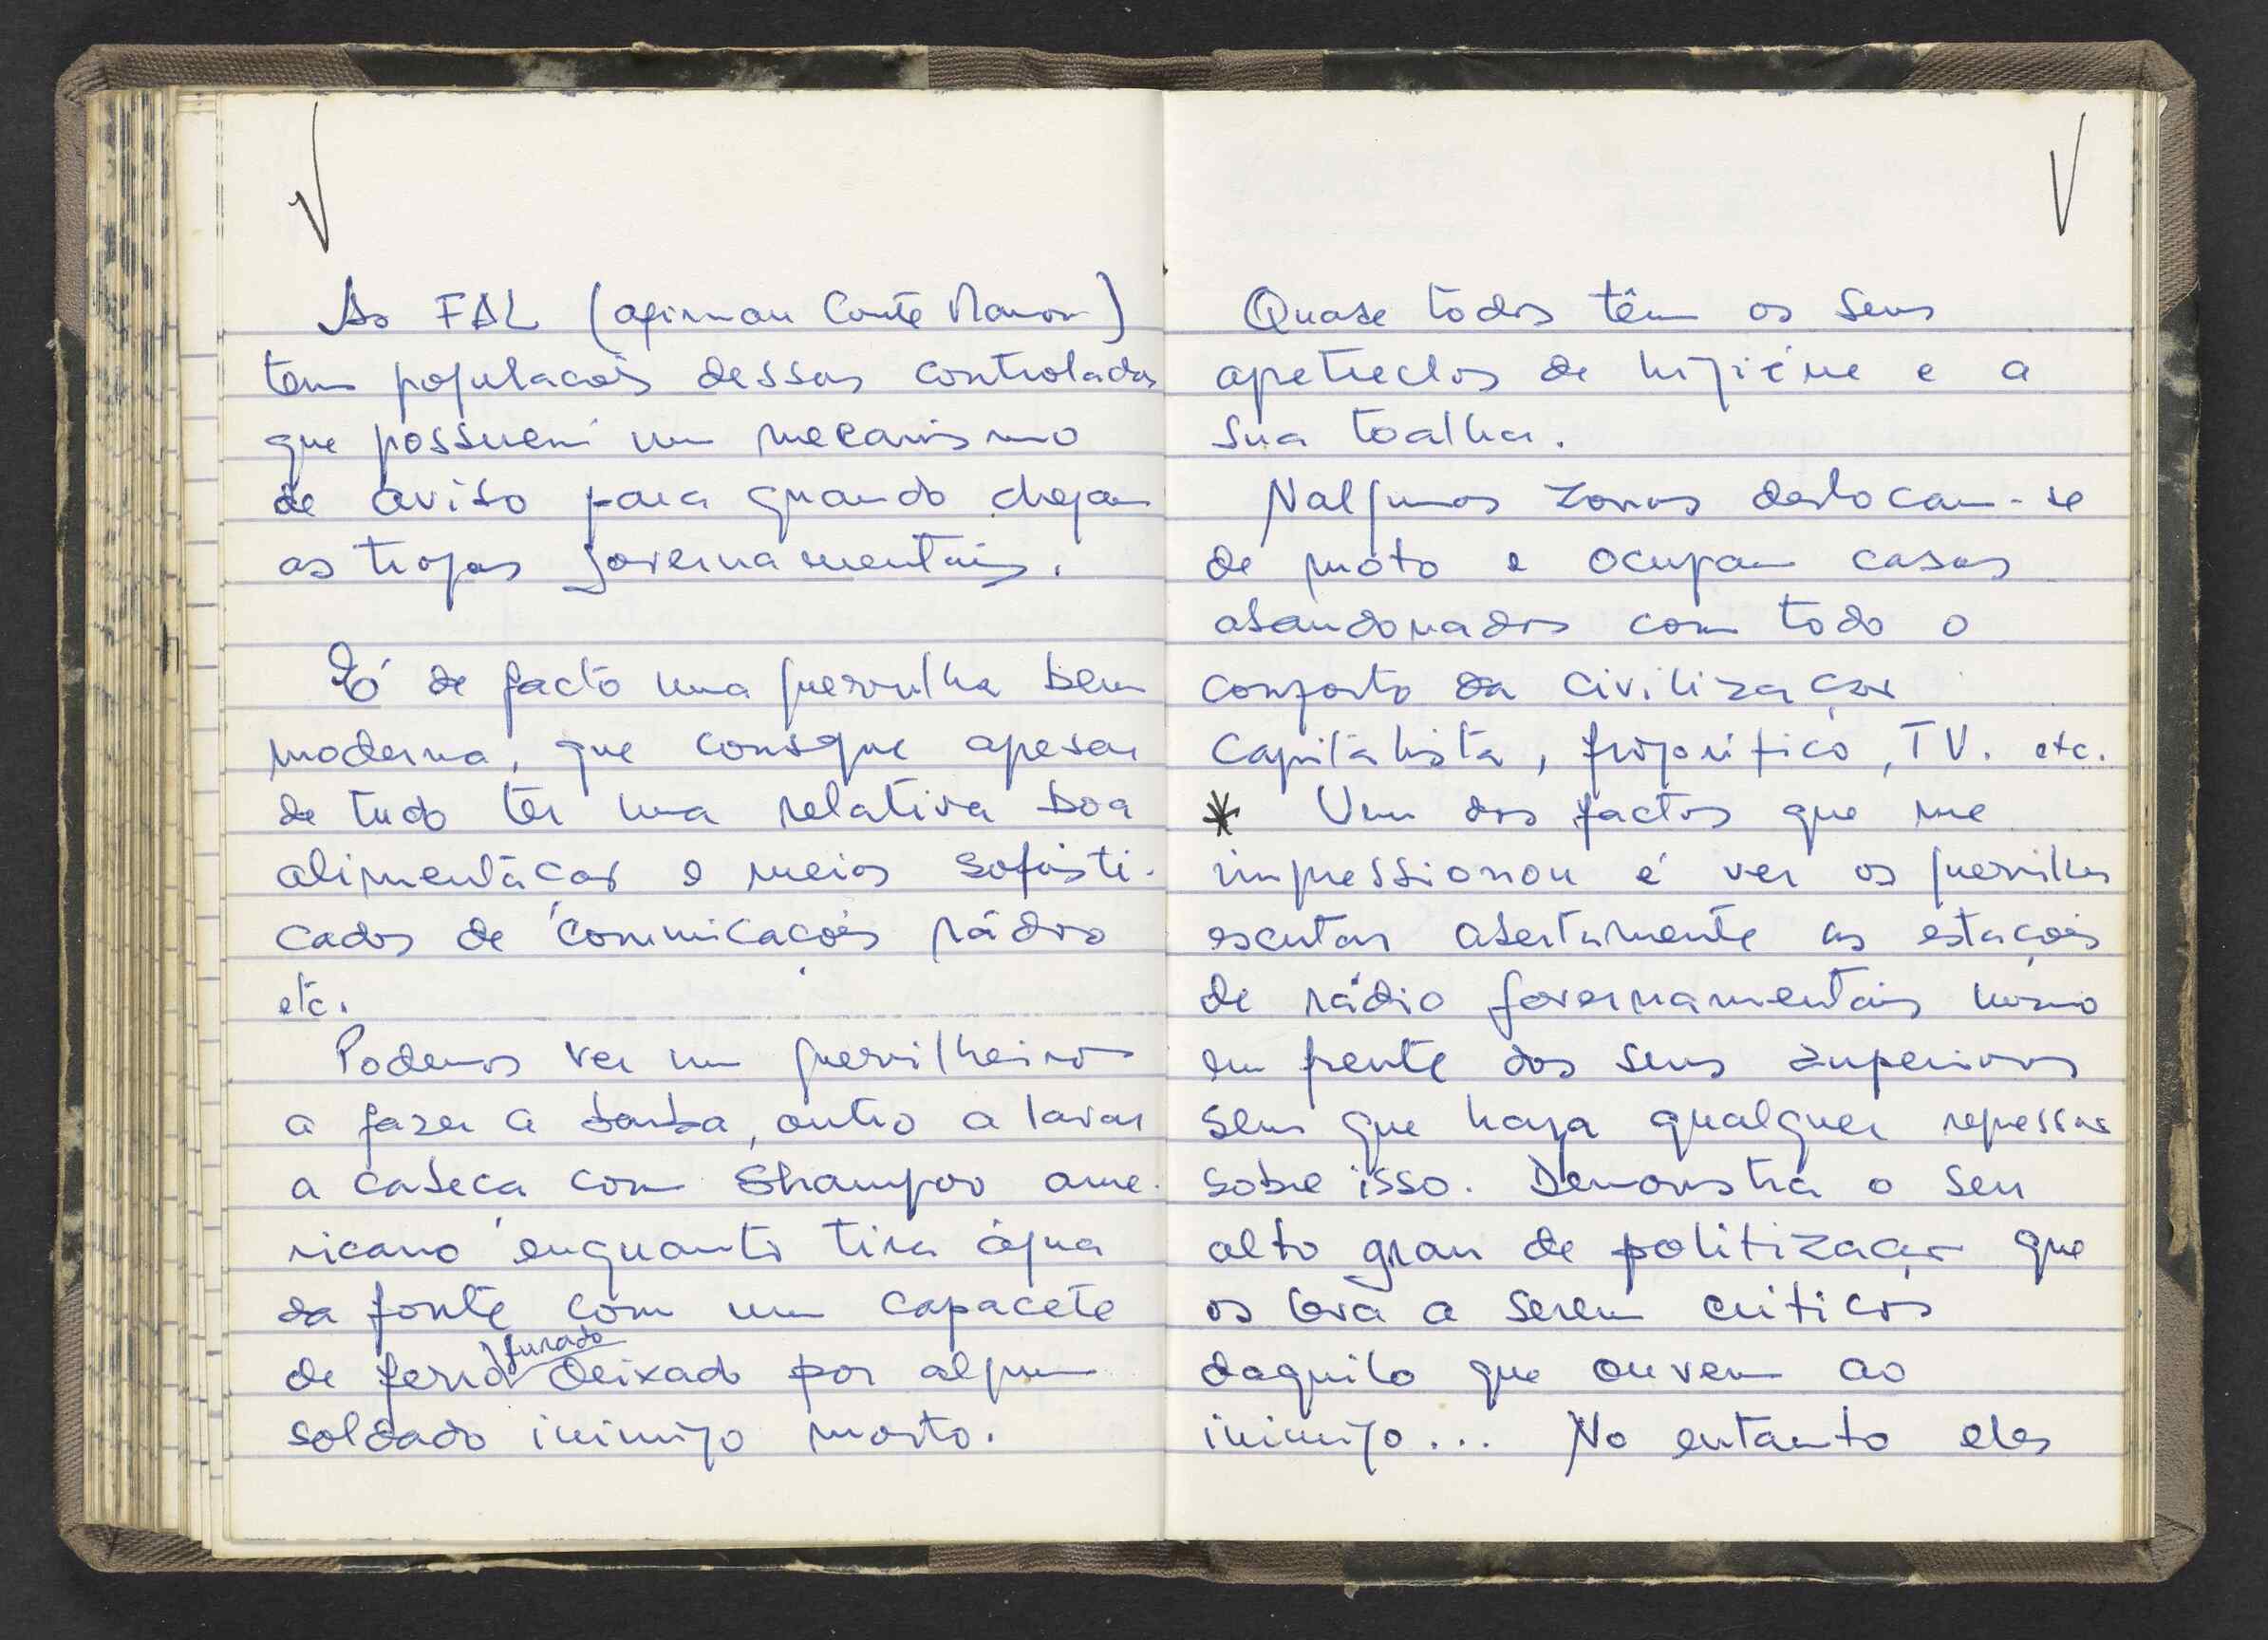 As FAL (afirmou Cmte Ramon)
tem populações dessas controladas
que possuem um mecanismo
de aviso para quando chegam
as tropas governamentais.
É de facto uma guerrilha bem
moderna, que consegue apesar
de tudo ter uma relativa boa
alimentação e meios sofisti-
cados de comunicações rádio
etc.
Podemos ver um guerrilheiro
a fazer a barba, outro a lavar
a cabeça com Shampoo ame-
ricano enquanto tira água
da fonte com um capacete
de ferro furado deixado por algum
soldado inimigo morto.
Quase todos têm os seus
apetrechos de higiéne e a
sua toalha.
Nalgumas zonas deslocam-se
de moto e ocupam casas
abandonadas com todo o
conforto da civilização
capitalista, frigorífico, TV. etc.
* Um dos factos que me
impressionou é ver os guerrilhas
escutar abertamente as estações
de rádio governamentais mesmo
em frente dos seus superiores
sem que haja qualquer repressão
sobre isso. Demonstra o seu
alto grau de politização que
os leva a serem criticos
daquilo que ouvem ao
inimigo... No entanto eles